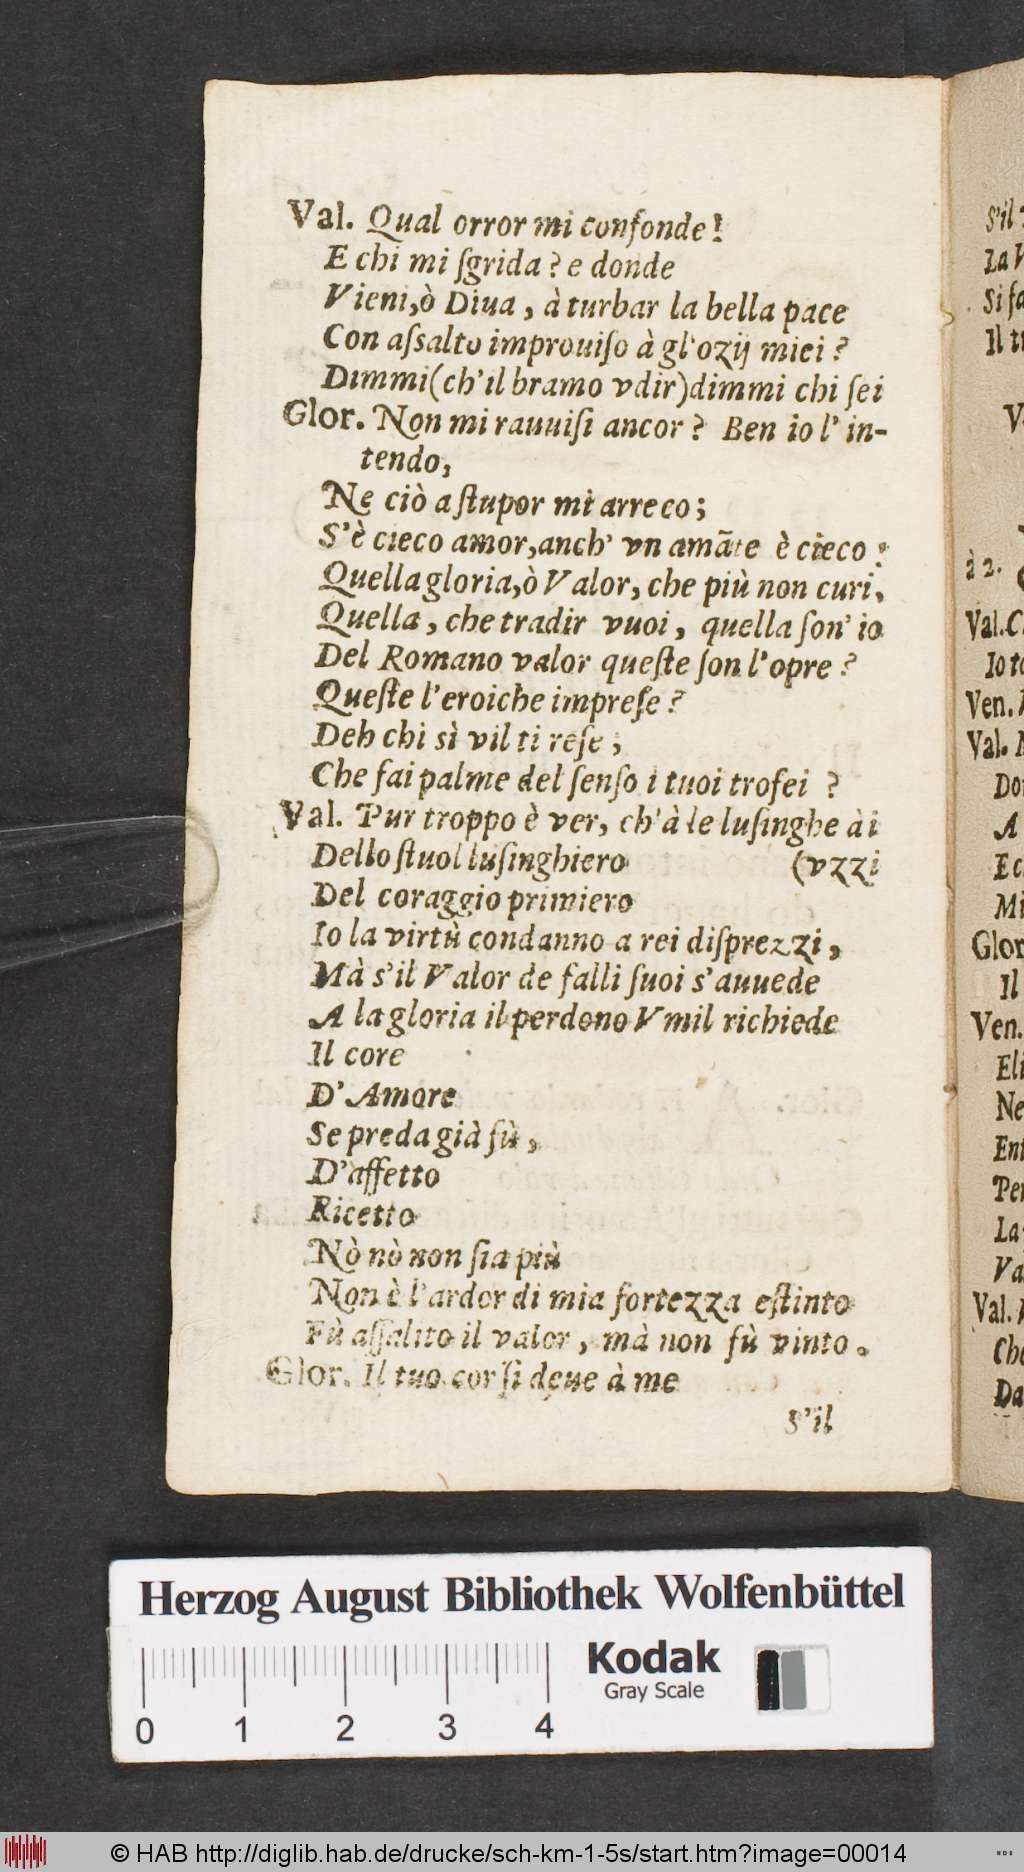 Val. Qual orror mi confonde!
E chi mi ſgrida? e donde
Vieni,ò Diua, à turbar la bella pace
Con aſsalto improuiſo à gl'ozij miei?
Dimmi(ch'il bramo vdir)dimmi chi ſei
Glor. Non mi rauuiſi ancor? Ben io l' in-
tendo,
Ne ciò a ſtupor mi arreco;
S'è cieco amor,anch' vn amāte è cieco:
Quella gloria,ò Valor, che più non curi,
Quella, che tradir vuoi, quella ſon' io
Del Romano valor queſte ſon l'opre?
Queſte l'eroiche impreſe?
Deh chi sì vil ti reſe;
Che fai palme del ſenſo i tuoi trofei ?
Val. Pur troppo è ver, ch'à le luſinghe à i
Dello ſtuol luſinghiero (vzzi
Del coraggio primiero
Io la virtù condanno a rei diſprezzi,
Mà s'il Valor de falli ſuoi s'auuede
A la gloria il perdono Vmil richiede
Il core
D'Amore
Se preda già fù,
D'affetto
Ricetto
Nò nò non ſia più
Non è l'ardor di mia fortezza eſtinto
Fù aſſalito il valor, mà non fù vinto.
Glor. Il tuo cor ſi deue à me
S'il
S'il
La
Si fa
Il
à 2.
Val.
Io
Ven.
Val.
A
Mi
Glor
Il
Ven.
Ne
La
Va
Val.
Da
Herzog August Bibliothek Wolfenbüttel
0 1 2 3 4
Kodak
Gray Scale
© HAB http://diglib.hab.de/drucke/sch-km-1-5s/start.htm?image=00014